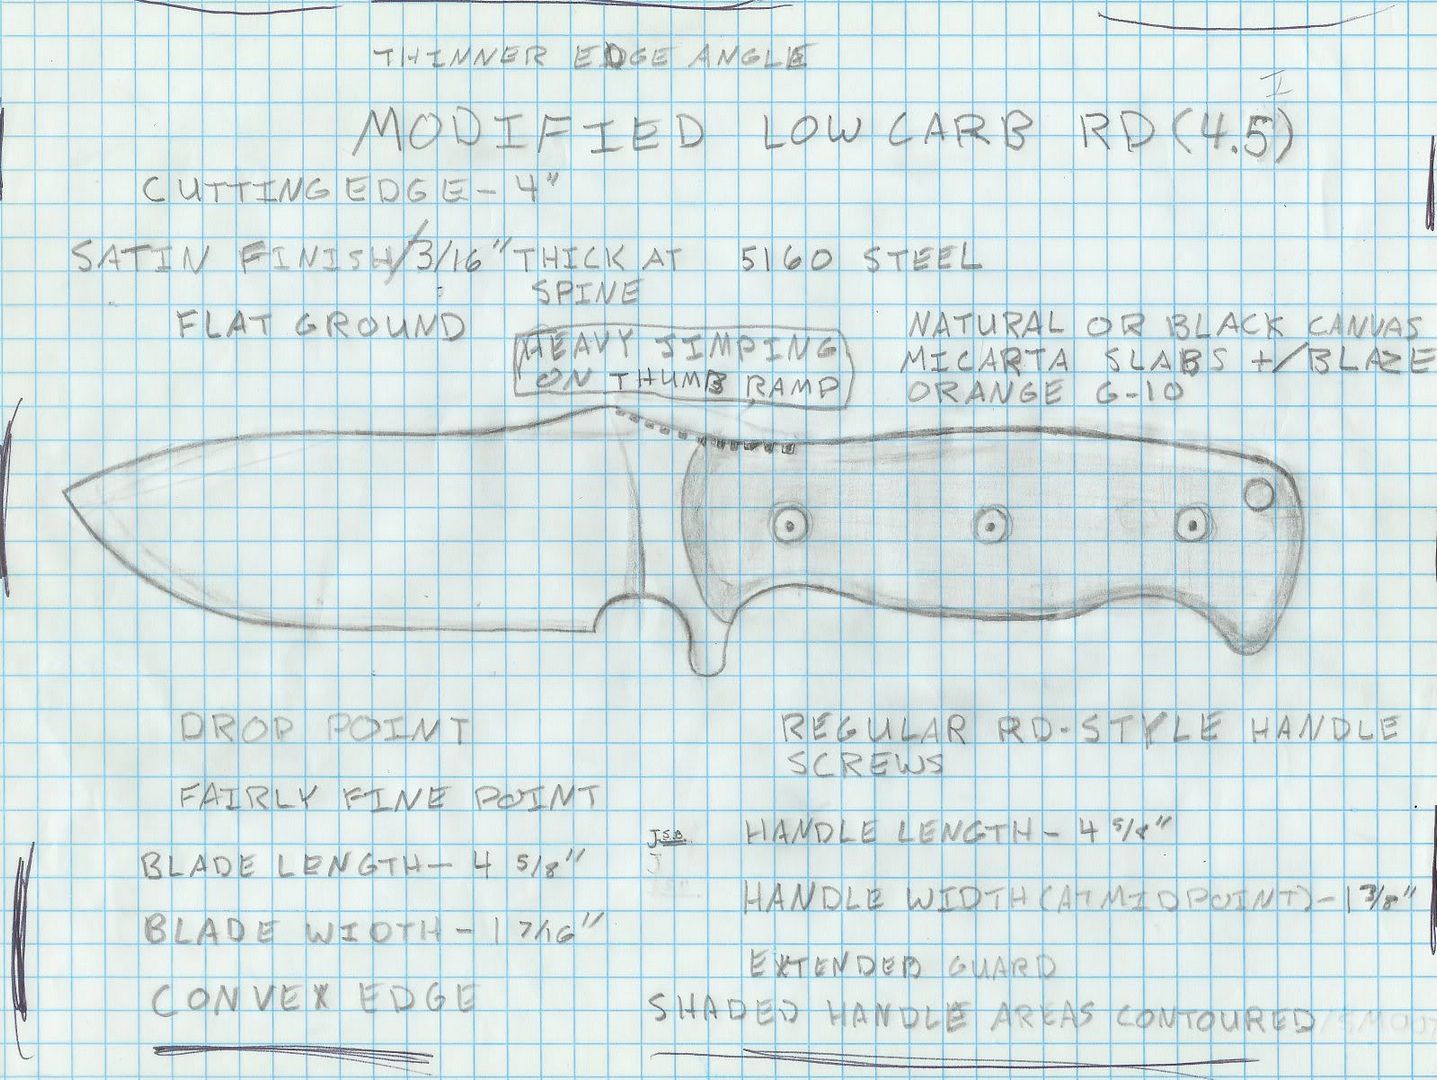 THINNER EDGE ANGLE
MODIFIED LOW CARB RD (4.5)
CUTTING EDGE - 4"
SATIN FINISH/3/16" THICK AT SPINE
5160 STEEL
FLAT GROUND
HEAVY JIMPING
ON THUMB RAMP
NATURAL OR BLACK CANVAS
MICARTA SLABS +/BLAZE
ORANGE G-10
DROP POINT
REGULAR RD-STYLE HANDLE
SCREWS
FAIRLY FINE POINT
J.S.B.
HANDLE LENGTH - 4 5/8"
BLADE LENGTH - 4 5/8"
HANDLE WIDTH (AT MIDPOINT) - 1 3/8"
BLADE WIDTH - 1 7/16"
EXTENDED GUARD
CONVEX EDGE
SHADED HANDLE AREAS CONTOURED